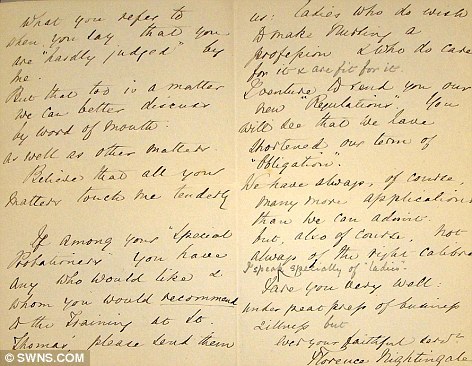 What you refer to
when you say that you
are "hardly judged" by
me.
But that too is a matter
we can better discuss
by word of mouth.
as well as other matters
Believe that all your
matters touch me tenderly
If among your "Special
Probationers" you have
any who would like &
whom you would recommend
to the Training at St.
Thomas' please send them
us: Ladies who do wish
to make Nursing a
profession & who do care
for it & are fit for it.
I venture to send you our
new "Regulations". You
will see that we have
shortened our term of
"Obligation".
We have always, of course
many more applications
than we can admit.
but, also of course, not
always of the right calibre
I speak specially of 'Ladies'.
Fare you very well:
under great press of business
& illness but
ever your faithful servt
Florence Nightingale
© SWNS.COM